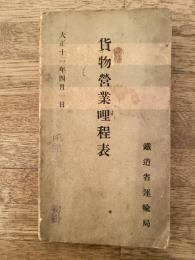 大正十一年四月一日
貨物營業哩程表
鐵道省運輸局